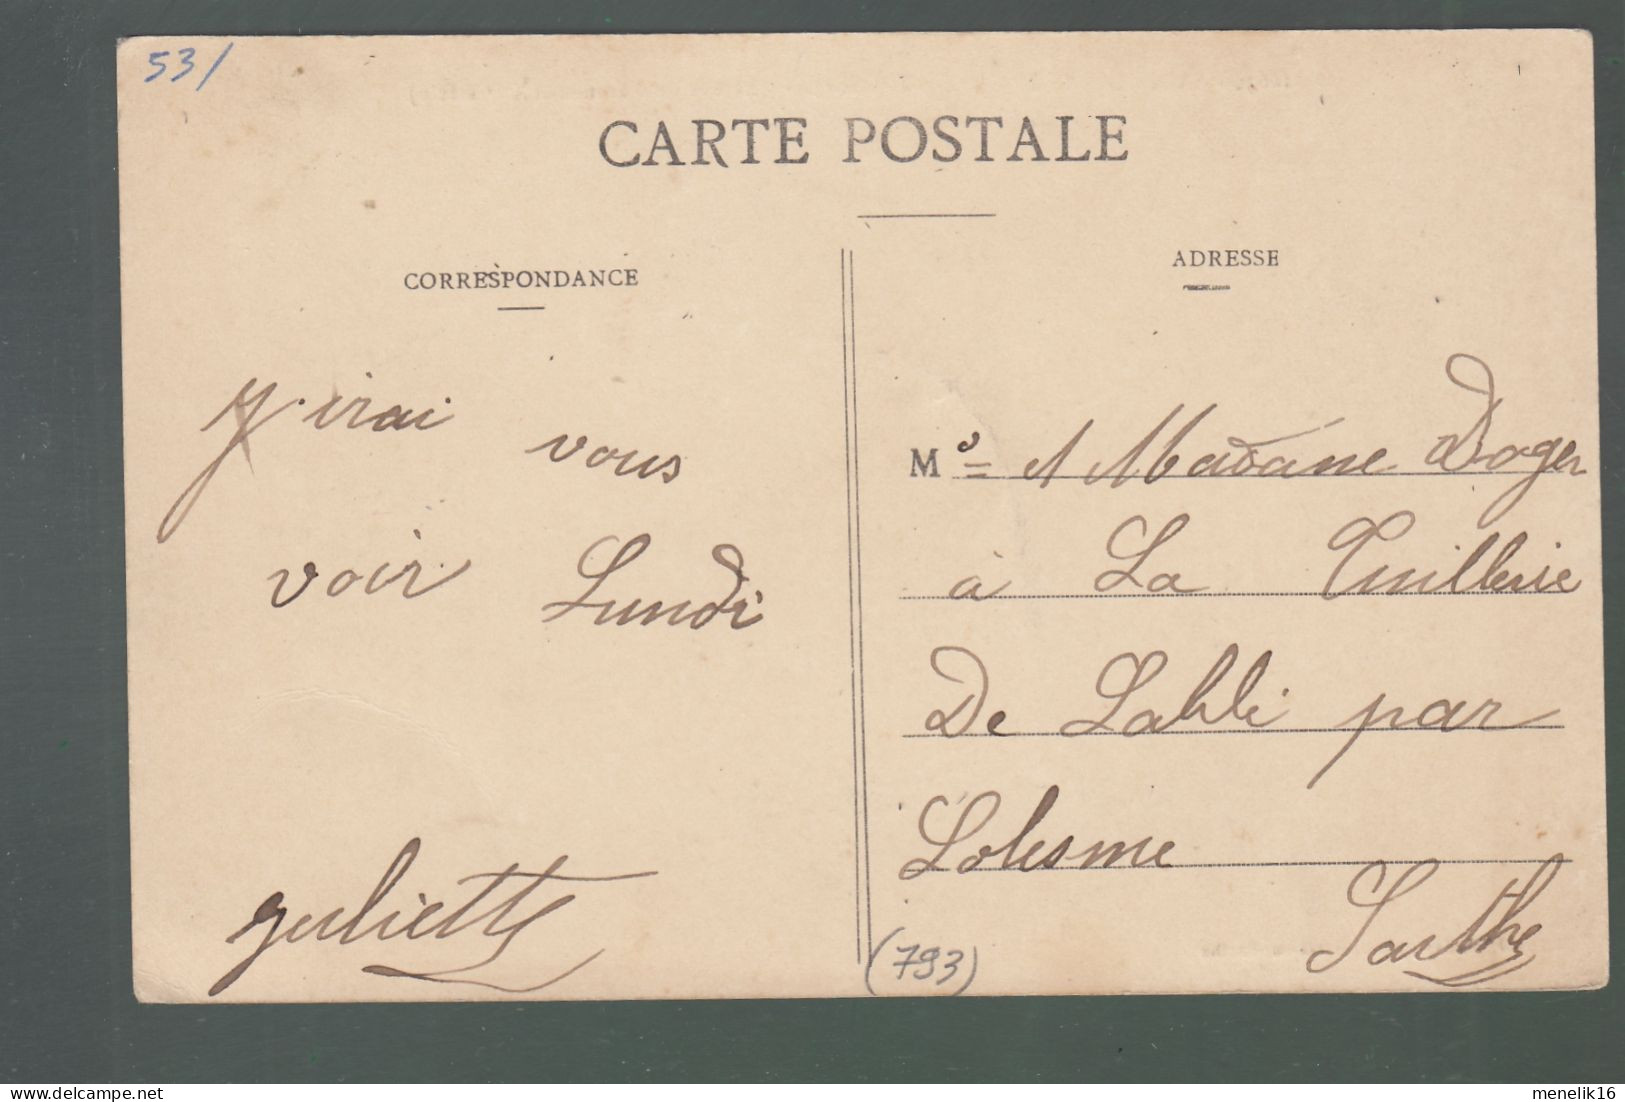 53/
CARTE POSTALE
CORRESPONDANCE
ADRESSE
J'irai vous
voir Lundi
Juliette
M A Madame Doger
à La Tuillerie
De Lablé par
Solesme
Sarthe
(793)
delcampe.net
menelik16